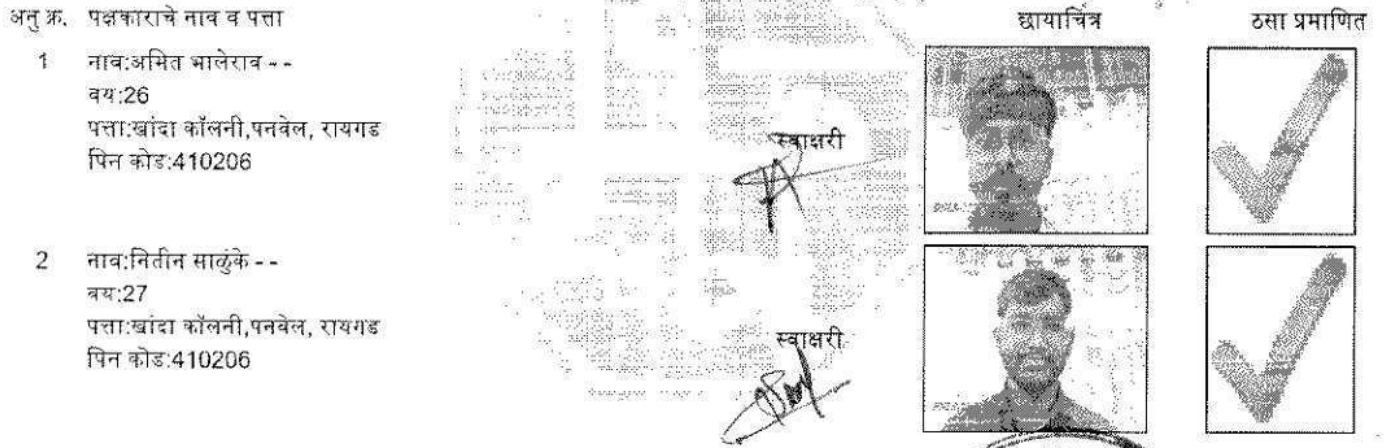 अनु क्र. पक्षकाराचे नाव व पत्ता छायाचित्र ठसा प्रमाणित
1 नाव:अमित भालेराव - -
वय:26
पत्ता:खांदा कॉलनी,पनवेल, रायगड
पिन कोड:410206
स्वाक्षरी
2 नाव:नितीन साळुंके - -
वय:27
पत्ता:खांदा कॉलनी,पनवेल, रायगड
पिन कोड:410206
स्वाक्षरी